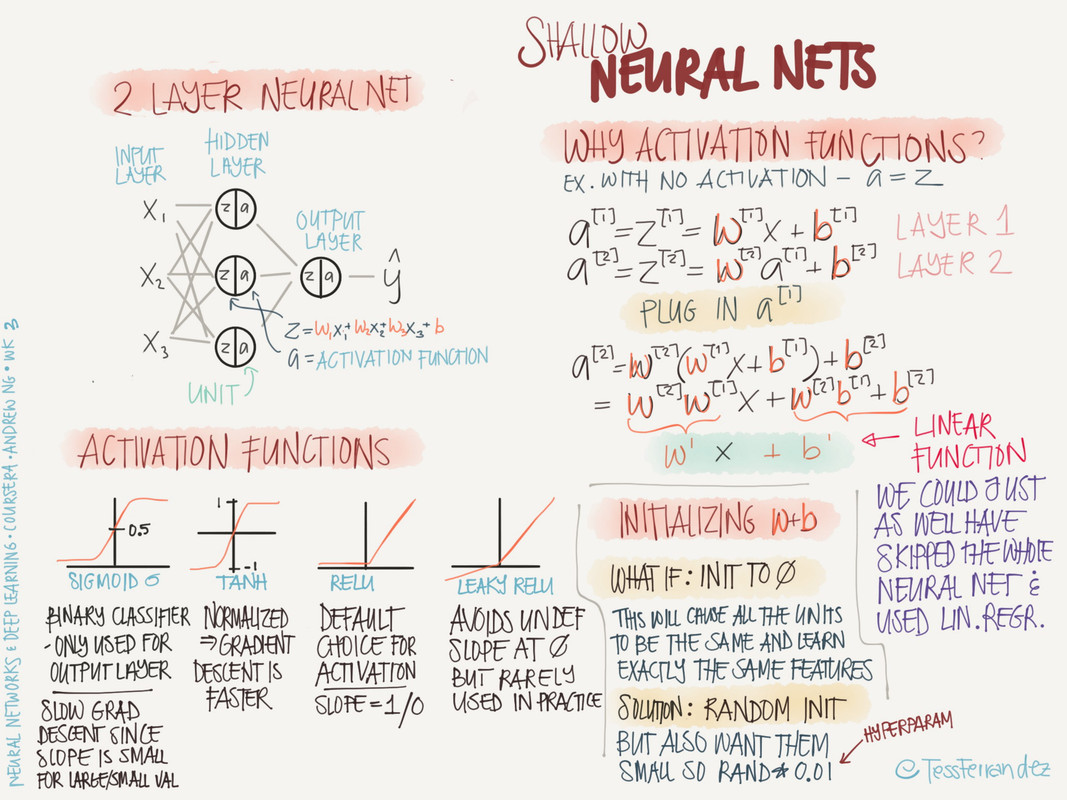 SHALLOW
NEURAL NETS
2 LAYER NEURAL NET
INPUT
LAYER
HIDDEN
LAYER
OUTPUT
LAYER
X₁
X₂
X₃
z|a
z|a
z|a
z|a
ŷ
z = w₁x₁ + w₂x₂ + w₃x₃ + b
a = ACTIVATION FUNCTION
UNIT
WHY ACTIVATION FUNCTIONS?
EX. WITH NO ACTIVATION - a = z
a[1] = z[1] = w[1]x + b[1] LAYER 1
a[2] = z[2] = w[2]a[1] + b[2] LAYER 2
PLUG IN a[1]
a[2] = w[2](w[1]x + b[1]) + b[2]
= w[2]w[1]x + w[2]b[1] + b[2]
w' x + b'
LINEAR
FUNCTION
WE COULD JUST
AS WELL HAVE
SKIPPED THE WHOLE
NEURAL NET &
USED LIN. REGR.
ACTIVATION FUNCTIONS
0.5
SIGMOID σ
BINARY CLASSIFIER
- ONLY USED FOR
OUTPUT LAYER
SLOW GRAD
DESCENT SINCE
SLOPE IS SMALL
FOR LARGE/SMALL VAL
1
-1
TANH
NORMALIZED
⇒ GRADIENT
DESCENT IS
FASTER
RELU
DEFAULT
CHOICE FOR
ACTIVATION
SLOPE = 1/0
LEAKY RELU
AVOIDS UNDEF
SLOPE AT 0
BUT RARELY
USED IN PRACTICE
INITIALIZING w+b
WHAT IF: INIT TO 0
THIS WILL CAUSE ALL THE UNITS
TO BE THE SAME AND LEARN
EXACTLY THE SAME FEATURES
SOLUTION: RANDOM INIT
BUT ALSO WANT THEM
SMALL SO RAND * 0.01
HYPERPARAM
NEURAL NETWORKS & DEEP LEARNING • COURSERA • ANDREW NG • WK 3
@TessFerrandez